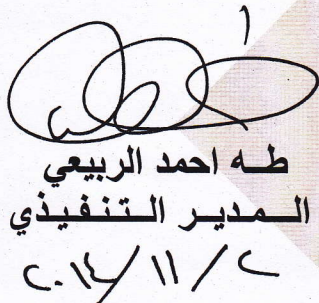 طه احمد الربيعي
المدير التنفيذي
٢٠١٤/١١/٢